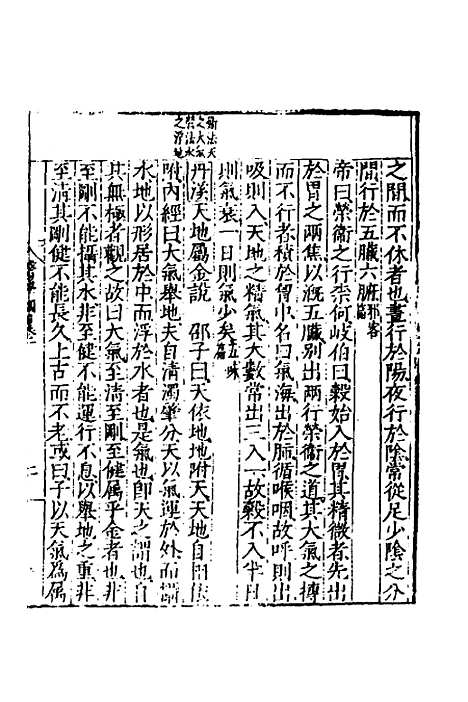 之間而不休者也晝行於陽夜行於陰常從足少陰之分
間行於五臟六腑邪客篇
帝曰榮衛之行柰何岐伯曰穀始入於胃其精微者先出
於胃之兩焦以溉五臟别出兩行榮衛之道其大氣之摶
而不行者積於胷中名曰氣海出於肺循喉咽故呼則出
吸則入天地之精氣其大數常出三入一故穀不入半日
則氣衰一日則氣少矣五味篇
衛法天
之大氣
榮法水
之滑地
丹溪天地屬金說 邵子曰天依地地附天天地自相依
附內經曰大氣舉地夫自清濁肇分天以氣運於外而攝
水地以形居於中而浮於水者也是氣也卽天之謂也
其無極者觀之故曰大氣至清至剛至健属乎金者也非
至剛不能攝其水非至健不能運行不息以舉地之重非
至清其剛健不能長久上古而不老或曰子以天氣為属